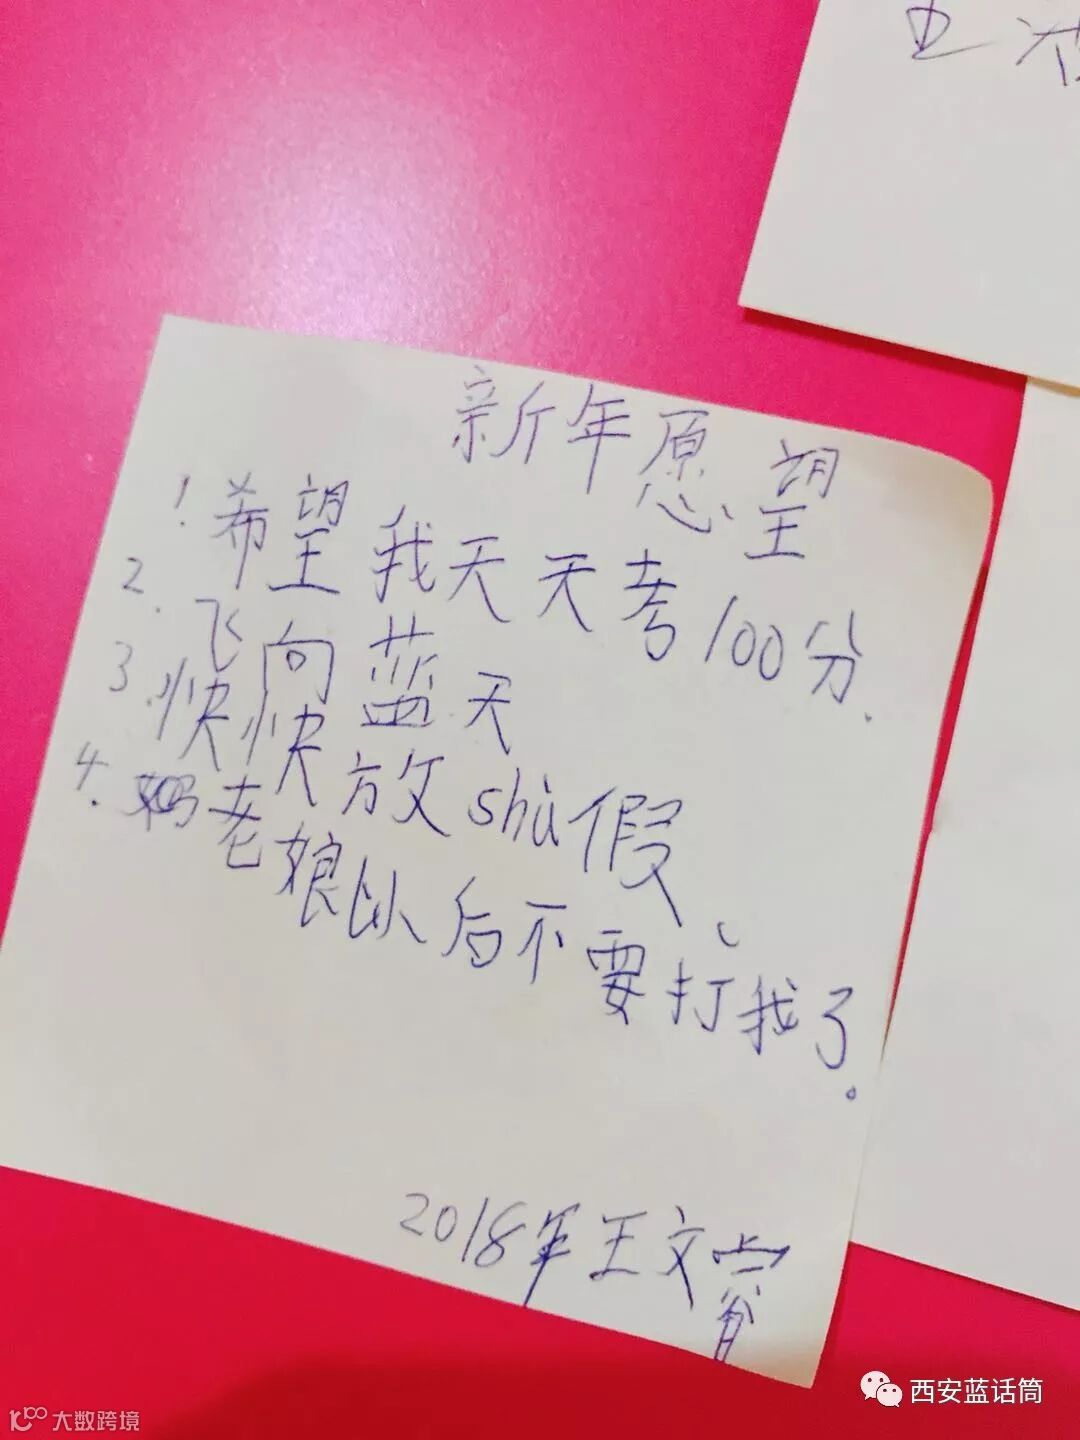 新年愿望
1. 希望我天天考100分.
2. 飞向蓝天
3. 快快放shǔ假、
4. 老娘以后不要打我了。
2018年王文睿
西安蓝话筒
大数跨境